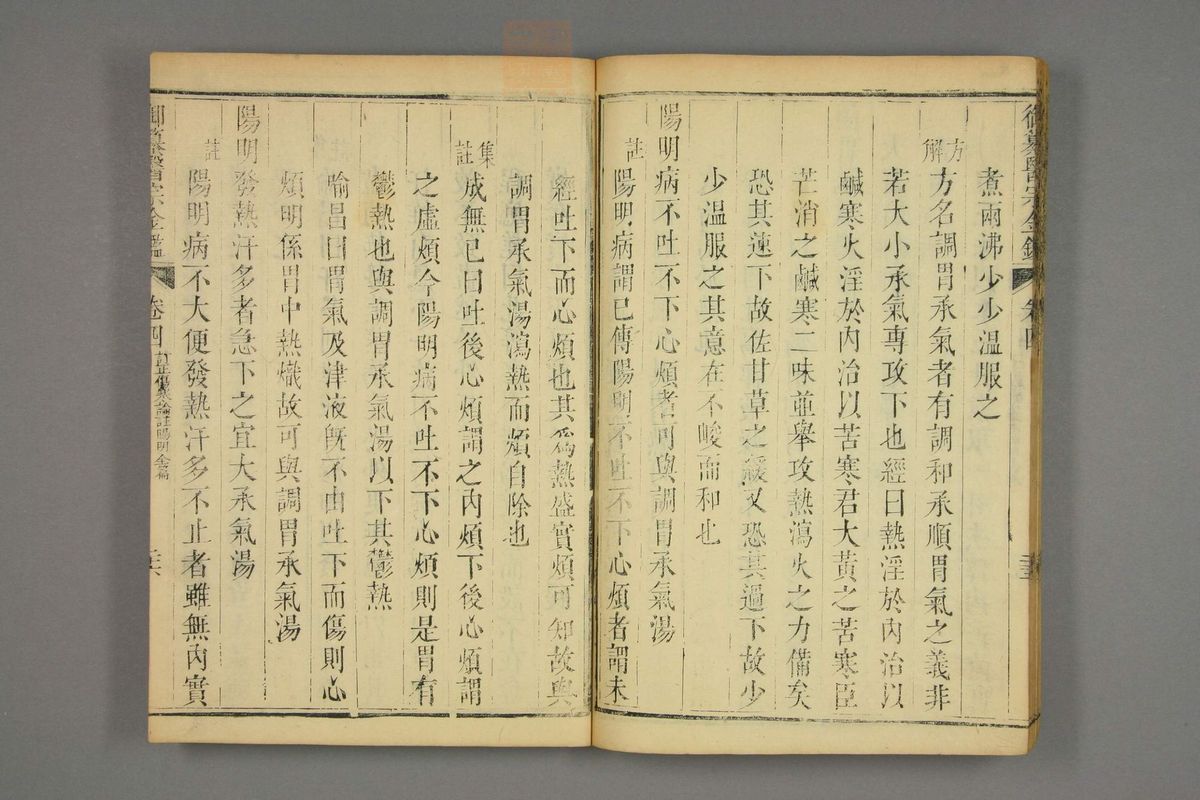 御纂醫宗金鑑 卷四
煮兩沸少少溫服之
方解 方名調胃承氣者有調和承順胃氣之義非
若大小承氣專攻下也經曰熱淫於內治以
鹹寒火淫於內治以苦寒君大黃之苦寒臣
芒消之鹹寒二味並舉攻熱瀉火之力備矣
恐其速下故佐甘草之緩又恐其過下故少
少溫服之其意在不峻而和也
陽明病不吐不下心煩者可與調胃承氣湯
註 陽明病謂已傳陽明不吐不下心煩者謂未
經吐下而心煩也其為熱盛實煩可知故與
調胃承氣湯瀉熱而煩自除也
集註 成無已曰吐後心煩謂之內煩下後心煩謂
之虛煩今陽明病不吐不下心煩則是胃有
鬱熱也與調胃承氣湯以下其鬱熱
喻昌曰胃氣及津液旣不由吐下而傷則心
煩明係胃中熱熾故可與調胃承氣湯
陽明發熱汗多者急下之宜大承氣湯
註 陽明病不大便發熱汗多不止者雖無內實
御纂醫宗金鑑 卷四 訂正傷寒論註陽明全篇